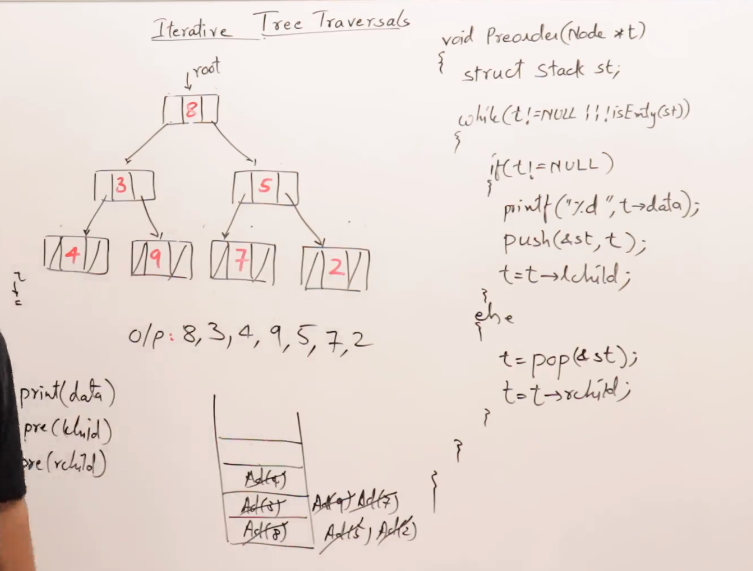 Iterative Tree Traversals
root
8
3 5
4 9 7 2
o/p: 8, 3, 4, 9, 5, 7, 2
print(data)
pre(lchid)
pre(rchild)
Ad(4)
Ad(3) Ad(9) Ad(7)
Ad(8) Ad(5), Ad(2)
void Preorder(Node *t)
{
struct Stack st;
while(t!=NULL || !isEmty(st))
{
if(t!=NULL)
{
printf("%d", t→data);
push(&st, t);
t=t→lchild;
}
else
{
t=pop(&st);
t=t→rchild;
}
}
}